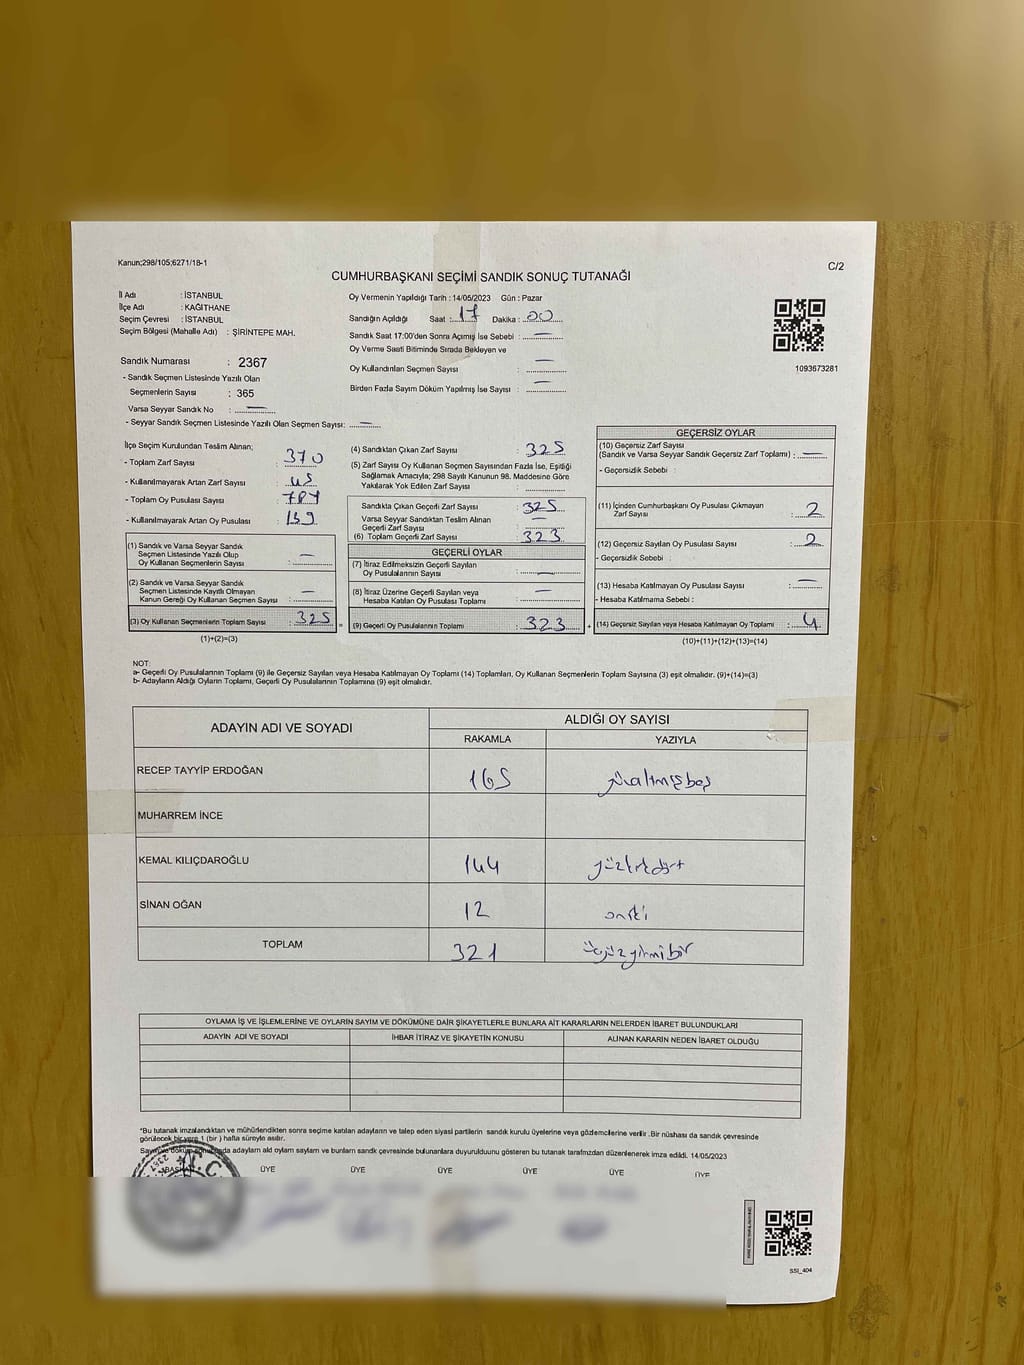 Kanun;298/105;6271/18-1
C/2
CUMHURBAŞKANI SEÇİMİ SANDIK SONUÇ TUTANAĞI
İl Adı : İSTANBUL
İlçe Adı : KAĞITHANE
Seçim Çevresi : İSTANBUL
Seçim Bölgesi (Mahalle Adı) : ŞİRİNTEPE MAH.
Sandık Numarası : 2367
- Sandık Seçmen Listesinde Yazılı Olan
Seçmenlerin Sayısı : 365
Varsa Seyyar Sandık No : —
- Seyyar Sandık Seçmen Listesinde Yazılı Olan Seçmen Sayısı: —
Oy Vermenin Yapıldığı Tarih : 14/05/2023 Gün : Pazar
Sandığın Açıldığı Saat : 17 Dakika : 00
Sandık Saat 17:00'den Sonra Açımış İse Sebebi : —
Oy Verme Saati Bitiminde Sırada Bekleyen ve
Oy Kullandırılan Seçmen Sayısı : —
Birden Fazla Sayım Döküm Yapılmış İse Sayısı : —
1093673281
İlçe Seçim Kurulundan Teslim Alınan;
- Toplam Zarf Sayısı : 370
- Kullanılmayarak Artan Zarf Sayısı : 45
- Toplam Oy Pusulası Sayısı :
- Kullanılmayarak Artan Oy Pusulası : 139
(1) Sandık ve Varsa Seyyar Sandık
Seçmen Listesinde Yazılı Olup
Oy Kullanan Seçmenlerin Sayısı : —
(2) Sandık ve Varsa Seyyar Sandık
Seçmen Listesinde Kayıtlı Olmayan
Kanun Gereği Oy Kullanan Seçmen Sayısı : —
(3) Oy Kullanan Seçmenlerin Toplam Sayısı : 325
(1)+(2)=(3)
(4) Sandıktan Çıkan Zarf Sayısı : 325
(5) Zarf Sayısı Oy Kullanan Seçmen Sayısından Fazla İse, Eşitliği
Sağlamak Amacıyla; 298 Sayılı Kanunun 98. Maddesine Göre
Yakılarak Yok Edilen Zarf Sayısı :
Sandıkta Çıkan Geçerli Zarf Sayısı : 325
Varsa Seyyar Sandıktan Teslim Alınan
Geçerli Zarf Sayısı : —
(6) Toplam Geçerli Zarf Sayısı : 323
GEÇERLİ OYLAR
(7) İtiraz Edilmeksizin Geçerli Sayılan
Oy Pusulalarının Sayısı : —
(8) İtiraz Üzerine Geçerli Sayılan veya
Hesaba Katılan Oy Pusulası Toplamı : —
= (9) Geçerli Oy Pusulalarının Toplamı : 323 +
GEÇERSİZ OYLAR
(10) Geçersiz Zarf Sayısı
(Sandık ve Varsa Seyyar Sandık Geçersiz Zarf Toplamı) : —
- Geçersizlik Sebebi :
(11) İçinden Cumhurbaşkanı Oy Pusulası Çıkmayan
Zarf Sayısı : 2
(12) Geçersiz Sayılan Oy Pusulası Sayısı : 2
- Geçersizlik Sebebi :
(13) Hesaba Katılmayan Oy Pusulası Sayısı : —
- Hesaba Katılmama Sebebi :
(14) Geçersiz Sayılan veya Hesaba Katılmayan Oy Toplamı : 4
(10)+(11)+(12)+(13)=(14)
NOT:
a- Geçerli Oy Pusulalarının Toplamı (9) ile Geçersiz Sayılan veya Hesaba Katılmayan Oy Toplamı (14) Toplamları, Oy Kullanan Seçmenlerin Toplam Sayısına (3) eşit olmalıdır. (9)+(14)=(3)
b- Adayların Aldığı Oyların Toplamı, Geçerli Oy Pusulalarının Toplamına (9) eşit olmalıdır.
ADAYIN ADI VE SOYADI ALDIĞI OY SAYISI
RAKAMLA YAZIYLA
RECEP TAYYİP ERDOĞAN 165 yüzaltmışbeş
MUHARREM İNCE
KEMAL KILIÇDAROĞLU 144 yüzkırkdört
SİNAN OĞAN 12 oniki
TOPLAM 321 üçyüzyirmibir
OYLAMA İŞ VE İŞLEMLERİNE VE OYLARIN SAYIM VE DÖKÜMÜNE DAİR ŞİKAYETLERLE BUNLARA AİT KARARLARIN NELERDEN İBARET BULUNDUKLARI
ADAYIN ADI VE SOYADI İHBAR İTİRAZ VE ŞİKAYETİN KONUSU ALINAN KARARIN NEDEN İBARET OLDUĞU
*Bu tutanak imzalandıktan ve mühürlendikten sonra seçime katılan adayların ve talep eden siyasi partilerin sandık kurulu üyelerine veya gözlemcilerine verilir .Bir nüshası da sandık çevresinde
görülecek bir yere 1 (bir ) hafta süreyle asılır.
adayların aldı oyların sayıları ve bunların sandık çevresinde bulunanlara duyurulduunu gösteren bu tutanak tarafımızdan düzenlenerek imza edildi. 14/05/2023
BAŞKAN ÜYE ÜYE ÜYE ÜYE ÜYE ÜYE
SSI_404